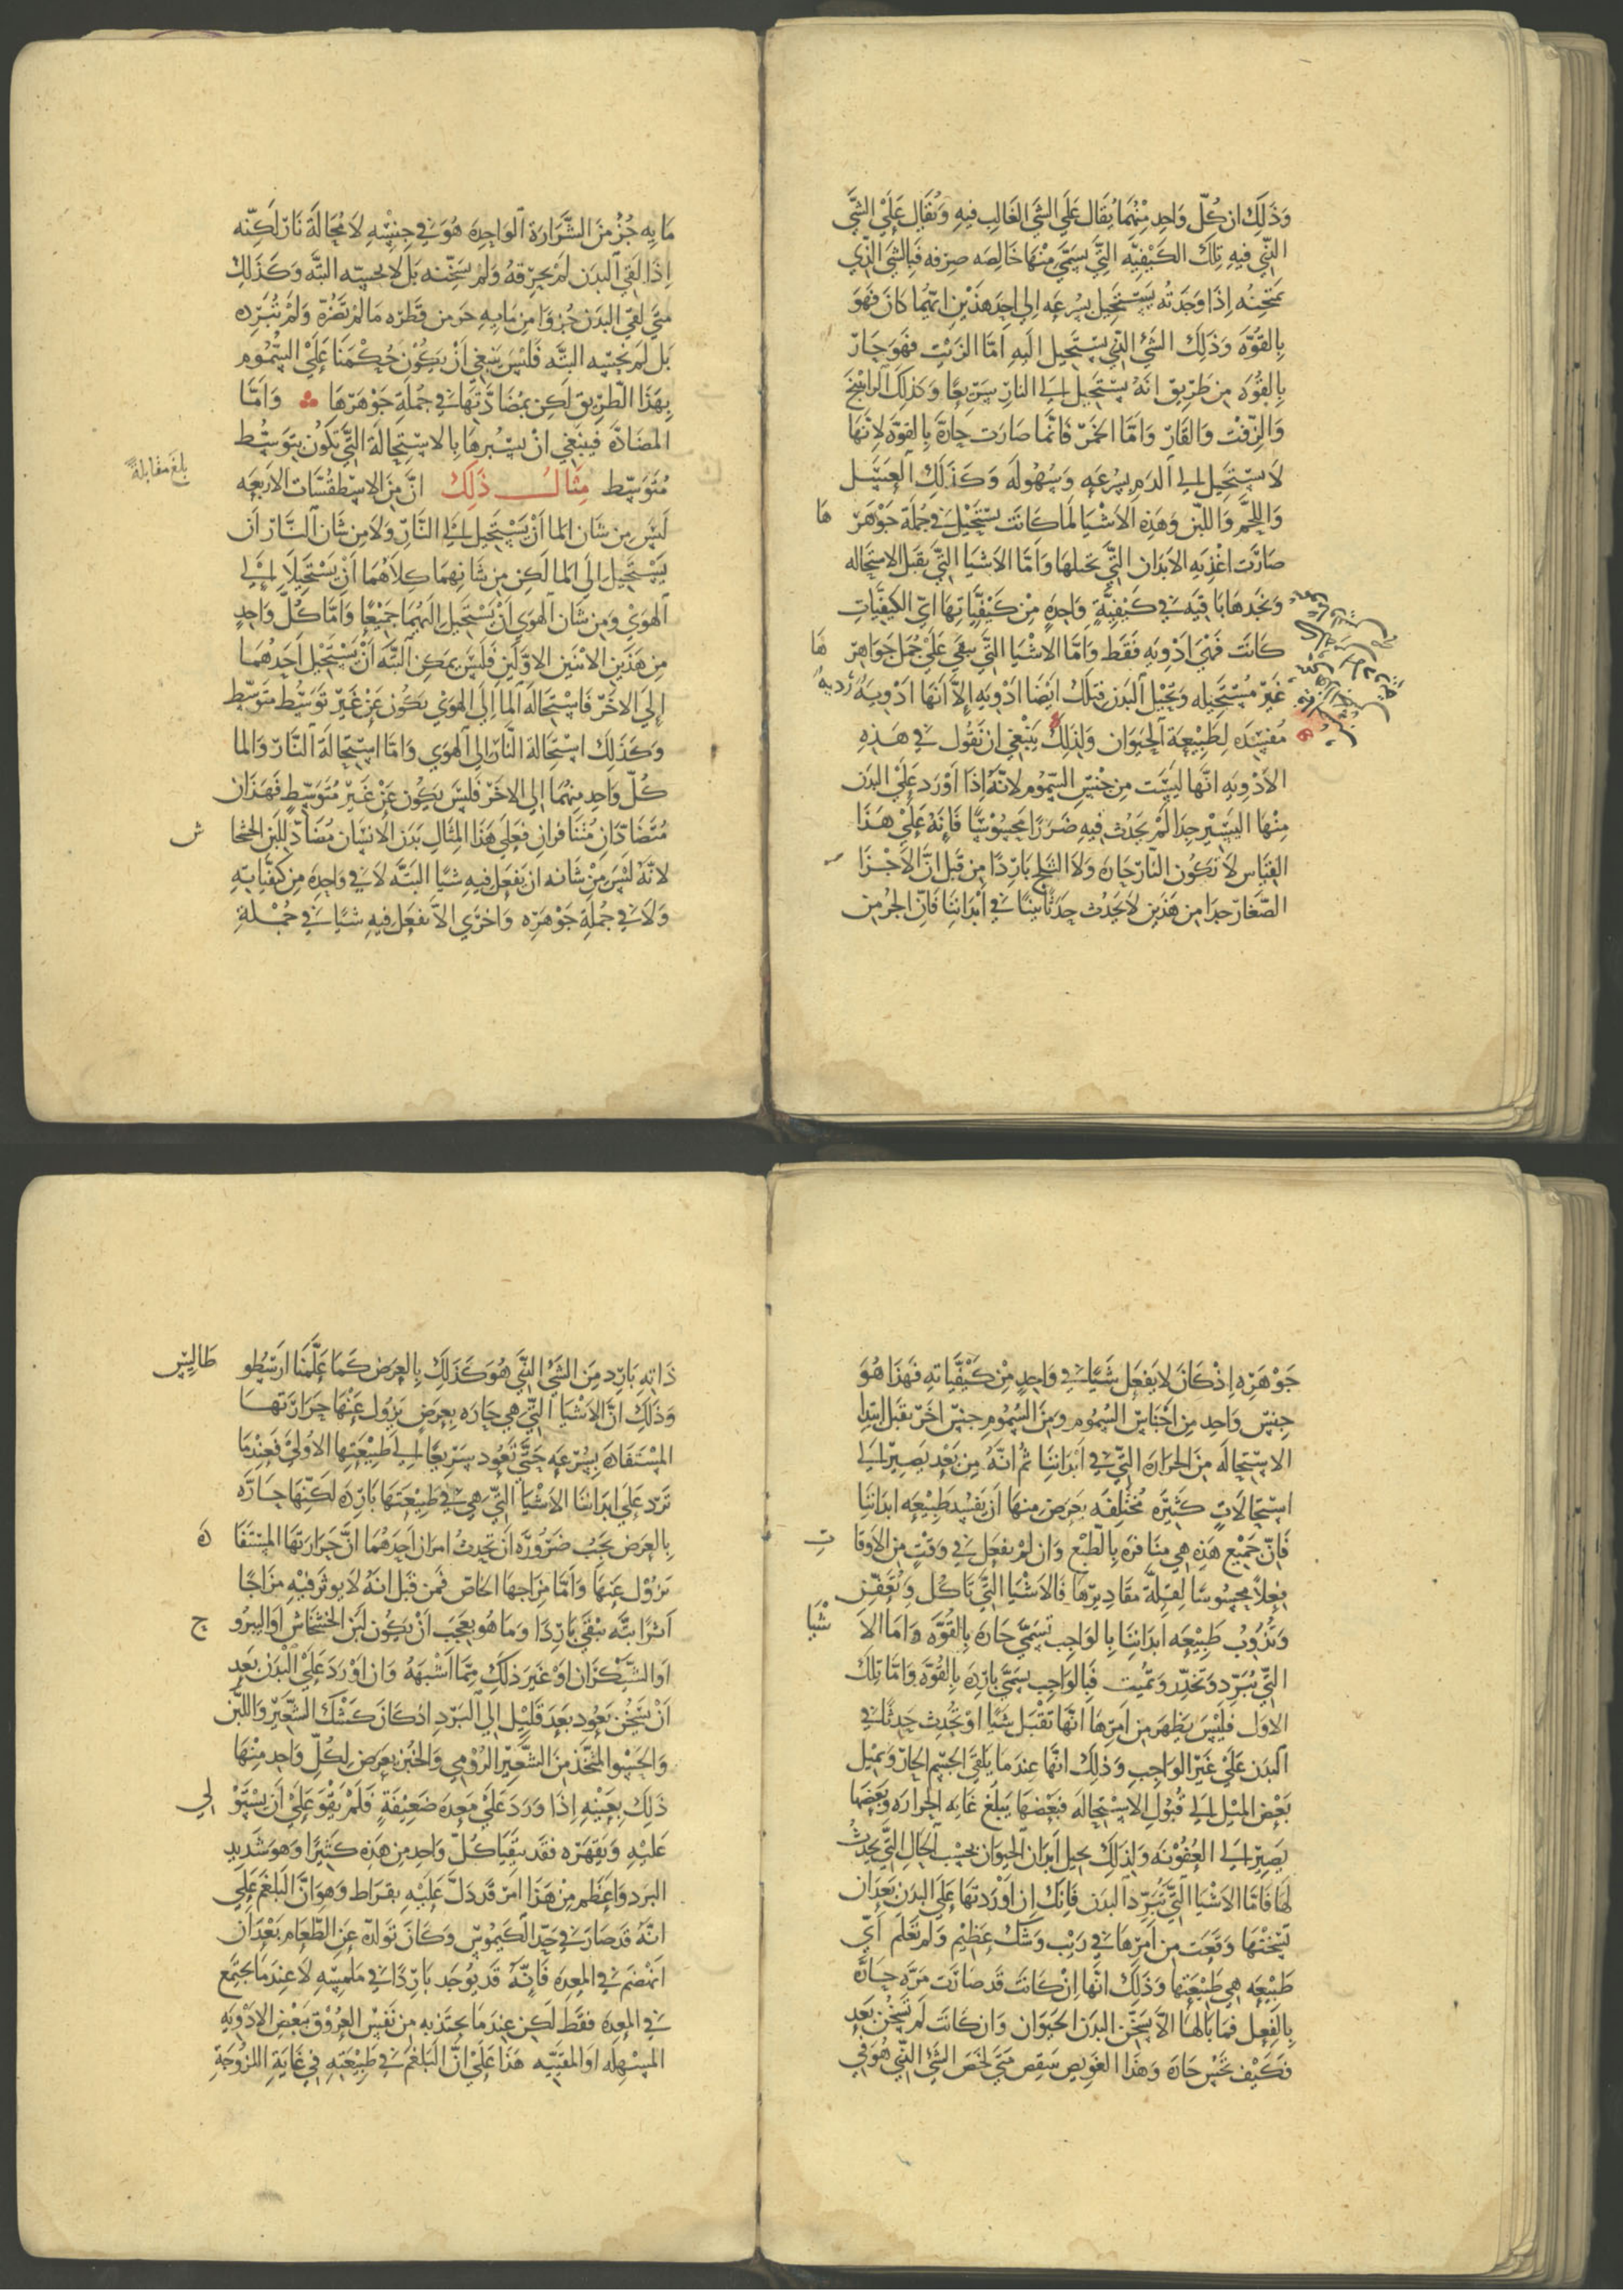 وَذَلِكَ ان كُلّ وَاحِدٍ مِنْهُمَا يُقَال عَلَي الشي الغَالِب فيهِ وَيُقَال عَلَيْ الشَّي
الذّي فيهِ تِلكَ الكَيْفيَّه التِّي يسَمَّي مِنْهَا خَالِصَه صِرْفه فَالشي الذّي
تمتحِنُه إِذَا وَجَدتُه يَسْتَحِيل بسُرعَه اِلي احدِ هَذَيْن ايّهُمَا كانَ فَهوَ
بِالقُوَّه وَذَلِكَ الشي الذّي يَسْتَحِيل اليهِ اَمَّا الزَيْت فَهوَ حَارّ
بِالقُوَّه مِن طَرِيق انّهُ يَسْتَحِيل اِلي النارِ سَرِيعًا وَكذلِكَ الرَاتينَج
وَالزِّفْت وَالقَارّ وَامَّا الخَمر فَانّما صَارَت حَارة بِالقوَّه لِانّهَا
لا تسْتحِيل اِلي الدَم بسُرعَه وَسُهُولَه وَكَذَلِكَ العسَل
وَاللحم وَاللبن وَهَذِهِ الاشْيَا لما كانَت تسْتَحِيل في جُملَة جَوْهَر هَا
صَارَت اغْذيَه الابدَان التِّي تحيلهَا وَامَّا الاشيَا التِّي يقبَل الاستحَاله
وَنجَدهَا بَاقيَه في كَيْفيَّةٍ وَاحِدةٍ مِنْ كَيْفيّاتِهَا ايّ الكَيفيّاتِ
كانَت فَهي ادْوِيَه فَقَط وَامَّا الاشْيَا التِّي يبقَي عَلَيْ جُمل جَوَاهِر هَا
غَيْر مُسْتَحِيله وَتحيل البَدَن فتلكَ ايْضًا ادْوِيَه اِلاّ انَهَا ادْوِيَه رَديه
مُفسِده لِطَبِيْعَة الحَيَوَان وَلِذلِكَ يَنْبَغي ان نَقُول في هَذِهِ
الادْويَه انّهَا لَيسَت مِن جِنْس السّمُوم لانّهُ إِذَا اوْرَد عَلَيْ البدَن
مِنْهَا اليَسِير جِدا لمْ يَحدُث فيهِ ضَرَرًا مَحسُوسًا فَانهُ عَلَيْ هَذَا
القيَاس لا تكُون النارّ حَارَه وَلا الثلج بَارِدًا مِن قبَل انَّ الاجْزَا
الصّغَار جدا من هَذَيْن لا يحدُث حدَثًا بينًا في ابْدَانِنَا فَانّ الجُز من
مَا بِه جُزْ مِنَ الشَّرَارَة الوَاحِدِة هُوَ في جِنْسِهِ لا مُحَالَة نَارّ لَكِنّه
اِذَا لقي البَدَن لم يحرِقهُ وَلم يسَخّنه بَل لا يحسِه البتَّه وَكَذَلِكَ
مَتَي لقي البَدَن جُزءًا مِن مَايه جز من قطره مَا لم تضُرّه وَلَمْ تُبَرِّده
بَل لم يحسّه البتَّه فَليْسَ يَنبَغي اَنْ يكُوْن حُكْمنَا عَلَيْ السّمُوم
بِهَذَا الطّرِيق لَكِن بمُضَادّتهَا في جُملَة جَوْهَرِهَا وَامَّا
المضَادّه فيَنبَغي انْ يسبُرهَا بِالاسْتِحَالَة التِّي تَكُون بتوَسُّط
مُتَوَسِّط مِثَالُ ذَلِكَ انَّ مِنَ الاسْطقُسَّات الاربعَه
لَيْسَ مِن شَانِ الما اَنْ يَسْتَحِيل اِلي النَّارِ وَلا مِن شَانِ النَّار اَن
يَسْتَحِيل اِلَي الما لَكِن مِن شَانِهِمَا كِلاهُمَا اَنْ يَسْتَحِيلا اِلي
الهوَي وَمِن شَانِ الهوَي اَنْ يَسْتَحِيل اليْهِمَا جَمِيْعًا وَامَّا كُلّ وَاحِدٍ
مِن هَذَيْنِ الاثنَين الاوّلَين فَلَيْسَ يمكِن البتَّه اَنْ يَسْتَحِيل احَدهُمَا
اِلي الاخَرّ فَاسْتِحَالَه الما اِلَي الهوَي يكُون عَنْ غَيْر تَوَسُّط مُتَوَسِّط
وَكَذَلِكَ اسْتِحَالة النَّار الي الهوَي وَامَّا اسْتِحَالَة النَّار وَالما
كُلّ وَاحِد مِنهُمَا اِلي الاخَرّ فَليسَ يَكُون عَنْ غَيْر مُتَوَسِّطٍ فَهَذَان
مُتَضَادّان مُتَنَافِران فعَلي هَذَا المِثَال بَدَن الانْسَان مُضَادّ لِلَبَن الخشخا ش
لانّهُ لَيسَ مِنْ شَانه ان يَفعَل فيهِ شيًا البتَّه لا في وَاحِدِة مِن كَيْفيّاتِهِ
وَلا في جُملَةِ جَوْهَرِه وَاحْرَي الاّ يفعَل فيهِ شيًا في جُمْلَةِ
بلغ مقابلة
جَوْهَرِه اِذْ كانَ لا يَفعَل شَيًا في وَاحِدٍ مِنْ كَيْفيَّاتِهِ فَهَذَا هُوَ
جِنس وَاحِد مِن اجْنَاس السُمُوم وَمِنَ السُمُوم جِنس اخَر يقبَل ابتِدا
الاستِحَالَه مِنَ الحَرَارَة التِّي في ابْدَانِنَا ثُم انّهُ مِن بَعْد يَصِير اِلي
اسْتحَالاتٍ كَثِيْرَه مُخْتَلِفَه يعرَض مِنهَا اَن يَفسُد طَبِيْعَه ابدَانِنَا
فَانّ جَمِيْع هَذِه هِي مُنَافره بِالطّبْع وَان لمْ يفعَل في وَقتٍ مِن الاوقَا تِ
فِعلاً مَحسُوسًا لِقلَّة مقَادِيْرِهَا فَالاشْيَا التِّي تَاكُل وَتعَفّن
وَتُذُوبُ طَبِيْعَه ابَدَانِنَا بِالوَاجِب تسَمَّي حَارَه بِالقُوَّه وَامَّا الا شْيَا
التِّي تبرِّد وَتخدِّر وَتمِيْت فَبالوَاجِب يسَمَّي بارِدَه بِالقُوَّه وَامَّا تِلكَ
الاوَل فليْسَ يَظهَر مِن امرِهَا انّهَا تقْبَل شَيًا او تُحدِث حَدثًا في
البَدَن عَلَيْ غَيْر الوَاجِبِ وَذَلِكَ انّهَا عِندَ مَا يَلقي الجسْم الحَارّ وَيميْل
بَعْض المَيْل اِلي قبُول الاستحَالَه فَبعْضهَا يَبلَغ غَايَه الحَرَارَه وَبَعضهَا
يَصِير اِلي العُفُونَه وَلِذَلِكَ يحيل ابْدَان الحيوَان بحَسْب الحَال التِّي يحدث
لهَا فَامَّا الاشيَا التِّي تُبَرِّد البَدَن فَانّكَ اِن اوْرَدتهَا عَلَي البدَن بَعْدَ ان
تسَخّنهَا وَقعَت مِن امرِهَا في رَيْب وَشكٍّ عَظِيْم وَلم تَعْلَم ايّ
طَبِيْعَه هِي طَبِيْعَتِهَا وَذَلِكَ انّهَا اِنْ كَانَت قَد صَارَت مَرَّه حَارَّه
بِالفِعل فمَا بَالهَا الاّ يسَخّن البَدَن الحَيَوَان وَان كانَت لَم تسَخَّن بَعد
فكَيْف تحسّ حَارَه وَهَذَا العَوِيص سَيُنقص متي لخَّص الشي الذّي هُوَ في
ذَاتِهِ بَارِد مِنَ الشَيْ الذِّي هُوَ كَذَلِكَ بالعرَض كَمَا عَلَّمَنَا ارَسْطُو طَاليس
وَذَلِكَ انَّ الاشْيَا التِّي هِي حَارَه بِعرَضٍ يزُول عَنْهَا حَرَارَتهَا
المُسْتَفَادَه بسُرعَه حَتَّي تَعُود سَرِيعًا اِلي طَبِيْعَتهَا الاُوْلي فَعِنْدَمَا
تَرّد عَلَي ابدَانِنَا الاشْيَا التِّي هِيَ في طَبِيْعَتهَا بَارِدَه لَكِنّهَا حَارّه
بِالعرَض يجَب ضَرُورَةً اَن يَحْدث امرَان احَدهُمَا انَّ حَرَارتهَا المسْتفَا دَه
تزُول عَنهَا وَامَّا مِزَاجهَا الخَاصّ فمِن قبَل انّهُ لا يُوثر فيهِ مزَاجًا
اَثرًا بتَّه يبقي بَارِدًا وَمَا هُو بعَجَبٍ اَنْ يَكُون لبَن الخشخَاش اوَ اليبرُو ج
اوَ الشّيكرَان اوْ غَيرَ ذَلِكَ مِمّا اشْبهَهُ وَان اوْرَدَ عَلَيْ الْبَدَن بَعد
اَنْ يَسخُن يَعُود بَعدَ قَليْل اِلي البَرد اِذ كَان كشْك الشّعِيْر وَاللبَن
وَالحَسْو المتّخَذ مِنَ الشّعِيْر الرّومِي وَالخبْز يَعرَض لِكُلّ وَاحِد مِنهَا
ذَلِكَ بِعَيْنِه إِذَا وَرَدَ عَلَيْ مَعِدَه ضَعِيْفَةٍ فَلَمْ يقوَ عَلَيْ اَن يسْتو لي
عَليْهِ وَيَقهَرّه فقَد يقيَا كُلّ وَاحِد مِن هَذِه كَثِيرًا وَهوَ شَدِيد
البَرد وَاعظَم مِن هَذَا امر قَد دَلّ عَليْهِ بقرَاط وَهوَ انَّ البَلغَم عَلَي
انّهُ قَد صَارَ في حَدّ الكَيمُوس وَكَانَ تَولدّه عَنِ الطّعَام بَعْدَ اَن
انهَضَم في المعِدَه فَانِّهُ قَد يُوجَد بَارِدًا في مَلمَسِه لا عِندَمَا يجتَمع
في المعِدَه فقَط لَكِن عِندَ مَا يجتذبه مِن نَفس العُرُوق بَعْض الادْوِيَه
المسْهِلَه اوَ المُقيّيه هَذَا عَلَيْ انّ البَلغَم في طَبِيْعَتِهِ في غَايَةِ اللزُوجَةِ